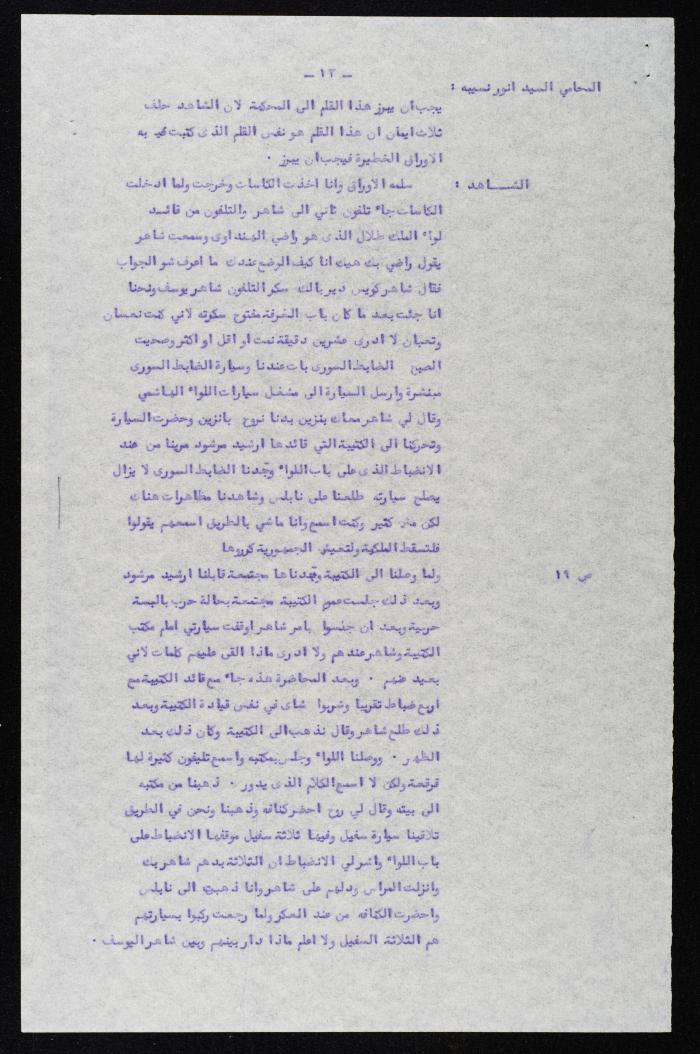 - ١٢ -
المحامي السيد انور نسيبه :
يجب ان يبرز هذا القلم الى المحكمة لان الشاهد حلف
ثلاث ايمان ان هذا القلم هو نفس القلم الذى كتبت به
الاوراق الخطيرة فيجب ان يبرز .
الشـــاهد : سلمه الاوراق وانا اخذت الكاسات وخرجت ولما ادخلت
الكاسات جاء تلفون ثاني الى شاهر والتلفون من قائد
لواء الملك طلال الذى هو راضي الهنداوى وسمعت شاهر
يقول راضي بك هيك انا كيف الوضع عندك ما اعرف شو الجواب
فقال شاهر كويس دير بالك سكر التلفون شاهر يوسف ونحنا
انا جئت بعد ما كان باب الغرفة مفتوح سكرته لاني كنت نعسان
وتعبان لا ادرى عشرين دقيقة نمت او اقل او اكثر وصحيت
الصبح الضابط السورى بات عندنا وسيارة الضابط السورى
مبنشرة وارسل السيارة الى مشغل سيارات اللواء الهاشمي
وقال لي شاهر معاك بنزين بدنا نروح بانزين وحضرت السيارة
وتحركنا الى الكتيبة التي قائدها ارشيد مرشود مرينا من عند
الانضباط الذى على باب اللواء وجدنا الضابط السورى لا يزال
يصلح سيارته طلعنا على نابلس وشاهدنا مظاهرات هناك
لكن مش كثير وكنت اسمع وانا ماشي بالطريق اسمعهم يقولوا
فلتسقط الملكية ولتعيش الجمهورية كرروها
ص ١٩
ولما وصلنا الى الكتيبة وجدناها مجتمعة قابلنا ارشيد مرشود
وبعد ذلك جلست عموم الكتيبة مجتمعة بحالة حرب بالبسة
حربية وبعد ان جلسوا بامر شاهر اوقفت سيارتي امام مكتب
الكتيبة وشاهر عندهم ولا ادرى ماذا القى عليهم كلمات لاني
بعيد عنهم . وبعد المحاضرة هذه جاء مع قائد الكتيبة مع
اربع ضباط تقريبا وشربوا شاى في نفس قيادة الكتيبة وبعد
ذلك طلع شاهر وقال نذهب الى الكتيبة وكان ذلك بعد
الظهر . ووصلنا اللواء وجلس بمكتبه واسمع تليفون كثيرة لها
قرقعة ولكن لا اسمع الكلام الذى يدور . ذهبنا من مكتبه
الى بيته وقال لي روح احضر كنافه وذهبنا ونحن في الطريق
تلاقينا سيارة سفيل وفيها ثلاثة سفيل موقفها الانضباط على
باب اللواء واشر لي الانضباط ان الثلاثة بدهم شاهر بك
وانزلت المراسل ودلهم على شاهر وانا ذهبت الى نابلس
واحضرت الكنافه من عند العكر ولما رجعت ركبوا بسيارتهم
هم الثلاثة السفيل ولا اعلم ماذا دار بينهم وبين شاهر اليوسف .